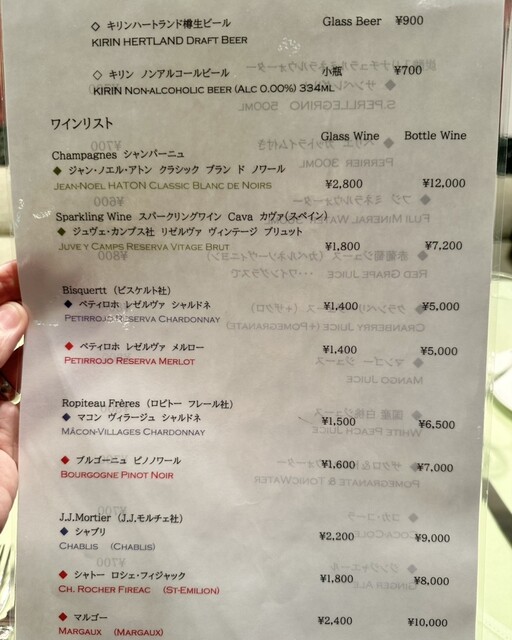 ◇ キリンハートランド樽生ビール Glass Beer ¥900
KIRIN HERTLAND DRAFT BEER
◇ キリン ノンアルコールビール 小瓶 ¥700
KIRIN NON-ALCOHOLIC BEER (ALC 0.00%) 334ML
ワインリスト
Glass Wine Bottle Wine
Champagnes シャンパーニュ
◆ ジャン・ノエル・アトン クラシック ブラン ド ノワール
JEAN-NOEL HATON CLASSIC BLANC DE NOIRS ¥2,800 ¥12,000
Sparkling Wine スパークリングワイン Cava カヴァ(スペイン)
◆ ジュヴェ・カンプス社 リゼルヴァ ヴィンテージ ブリュット
JUVE Y CAMPS RESERVA VITAGE BRUT ¥1,800 ¥7,200
Bisquertt (ビスケルト社)
◆ ペティロホ レゼルヴァ シャルドネ ¥1,400 ¥5,000
PETIRROJO RESERVA CHARDONNAY
◆ ペティロホ レゼルヴァ メルロー ¥1,400 ¥5,000
PETIRROJO RESERVA MERLOT
Ropiteau Frères (ロピトー フレール社)
◆ マコン ヴィラージュ シャルドネ ¥1,500 ¥6,500
MÂCON-VILLAGES CHARDONNAY
◆ ブルゴーニュ ピノノワール ¥1,600 ¥7,000
BOURGOGNE PINOT NOIR
J.J.Mortier (J.J.モルチェ社)
◆ シャブリ ¥2,200 ¥9,000
CHABLIS (CHABLIS)
◆ シャトー ロシェ・フィジャック ¥1,800 ¥8,000
CH. ROCHER FIREAC (ST-EMILION)
◆ マルゴー ¥2,400 ¥10,000
MARGAUX (MARGAUX)